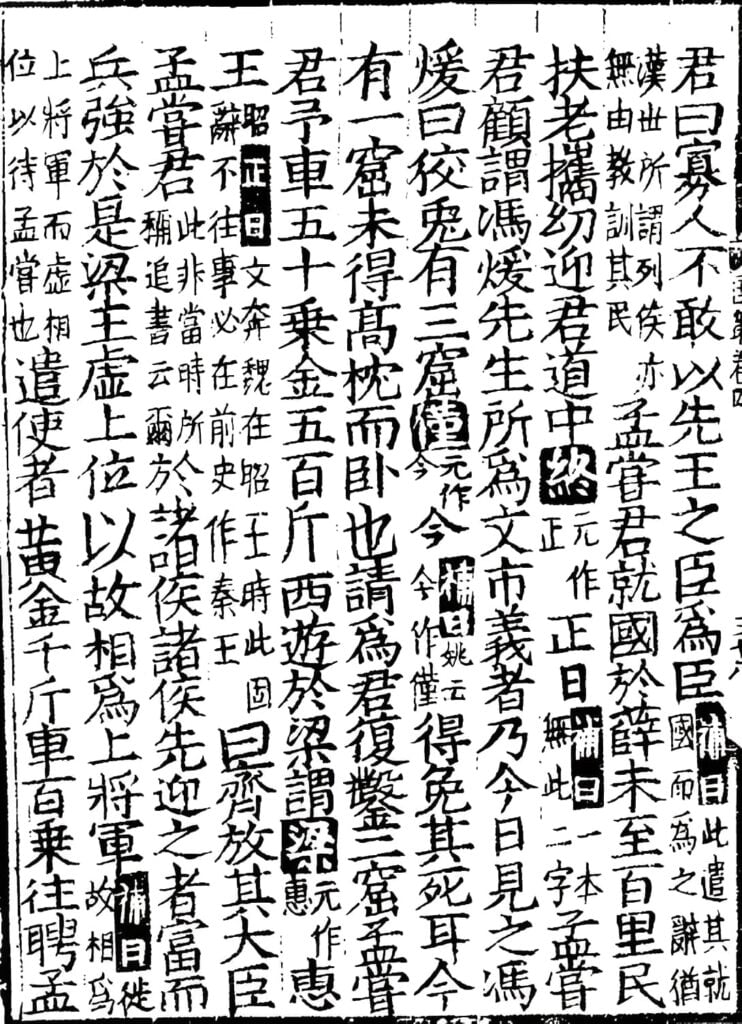 君曰寡人不敢以先王之臣爲臣補曰此遣其就國而爲之辭猶
漢世所謂列侯亦無由教訓其民孟嘗君就國於薛未至百里民
扶老攜幼迎君道中終元作正正日補曰一本無此二字孟嘗
君顧謂馮煖先生所爲文市義者乃今日見之馮
煖曰狡兔有三窟僅元作今今補曰姚云今作僅得免其死耳今
有一窟未得高枕而卧也請爲君復鑿二窟孟嘗
君予車五十乗金五百斤西遊於梁謂梁元作惠惠
王昭正曰文奔魏在昭王時此固辭不往事必在前史作秦王曰齊放其大臣
孟嘗君此非當時所稱追書云爾於諸侯諸侯先迎之者富而
兵強於是梁王虚上位以故相爲上將軍補曰徙故相爲
上將軍而虚相位以待孟嘗也遣使者黃金千斤車百乗往聘孟